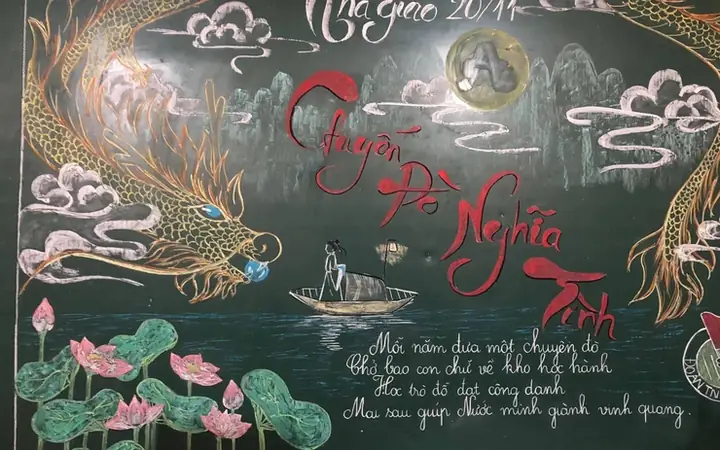 Nhà giáo 20/11
Chuyến
Đò
Nghĩa
Tình
Mỗi năm đưa một chuyến đò
Chở bao con chữ về kho học hành
Học trò đỗ đạt công danh
Mai sau giúp Nước mình giành vinh quang.
ĐOÀN TN